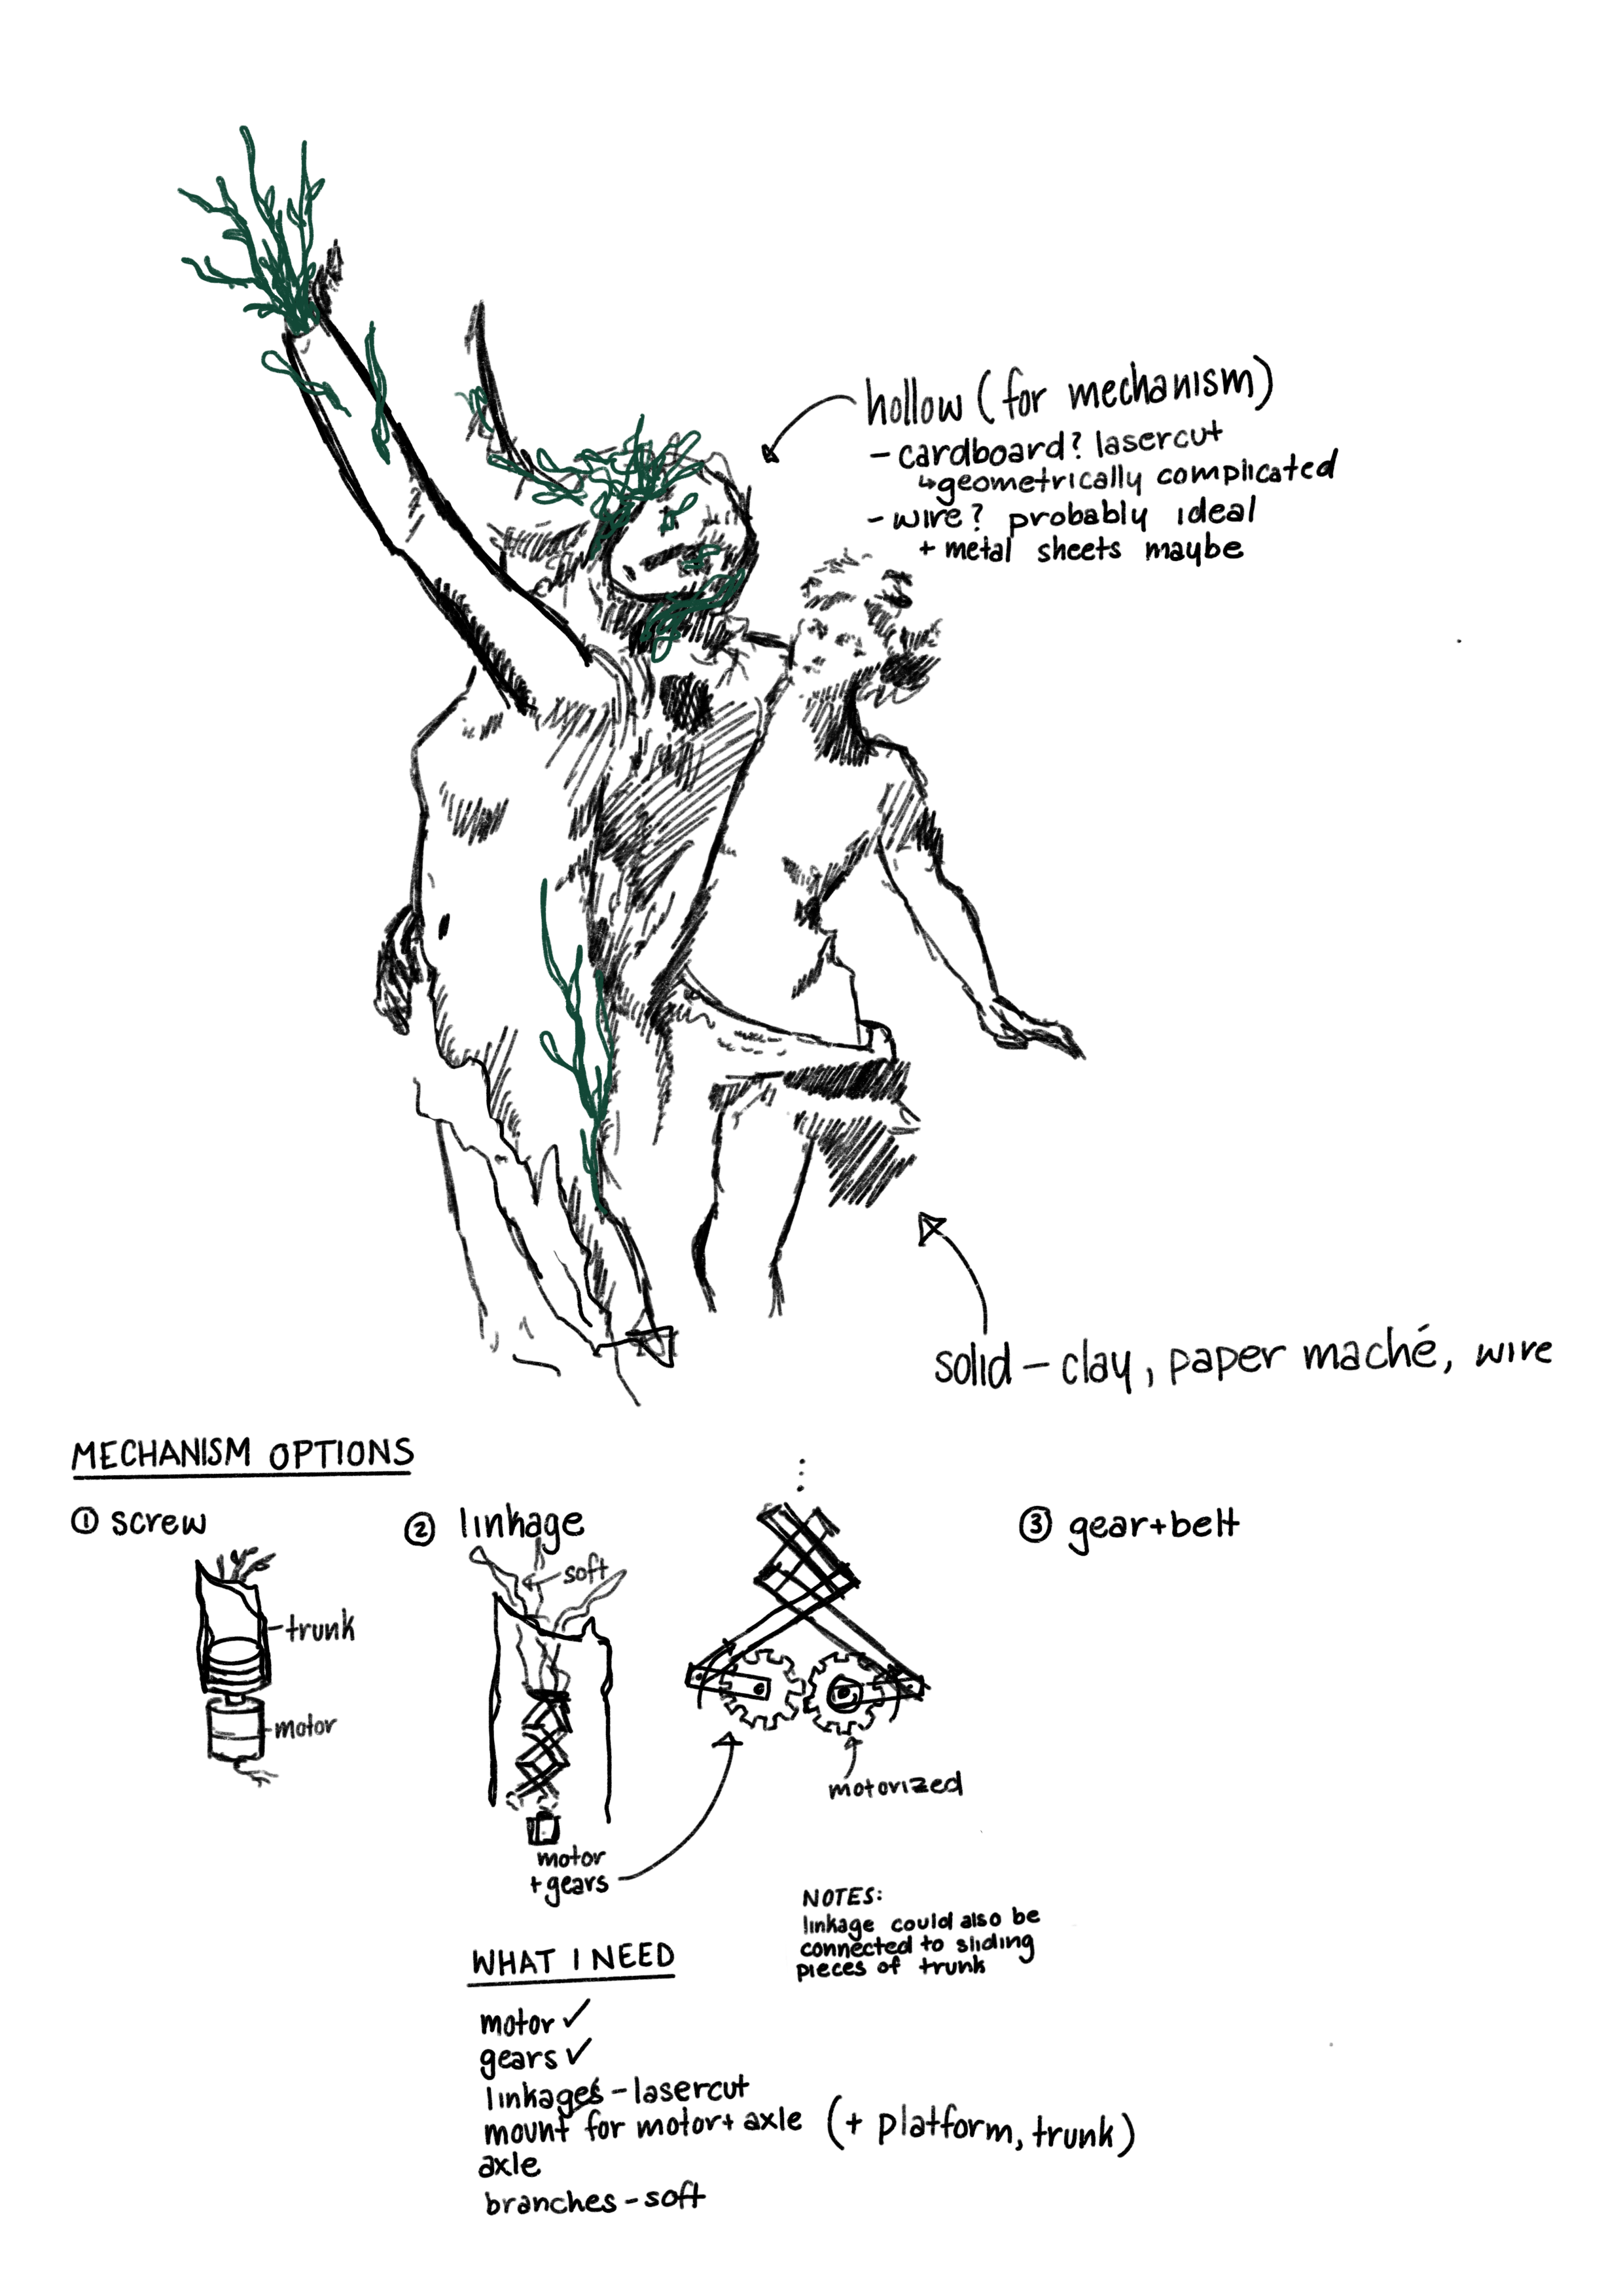 hollow (for mechanism)
- cardboard? lasercut
↳geometrically complicated
- wire? probably ideal
+ metal sheets maybe
solid - clay, paper maché, wire
MECHANISM OPTIONS
① screw
trunk
motor
② linkage
soft
motor
+gears
motorized
③ gear+belt
NOTES:
linkage could also be
connected to sliding
pieces of trunk
WHAT I NEED
motor ✓
gears ✓
linkages - lasercut
mount for motor+ axle (+ platform, trunk)
axle
branches - soft